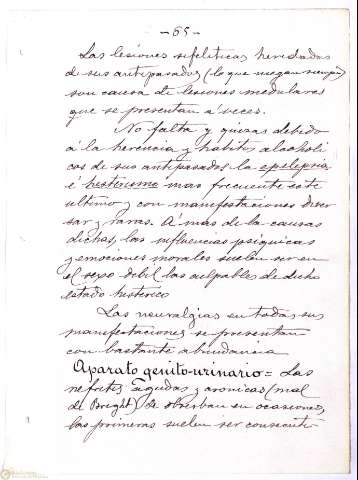 - 65 -
Las lesiones sifiliticas heredadas
de sus antipasados (lo que niegan siempre)
son causa de lesiones medulares
que se presentan á veces.
No falta y quizas debido
á la herencia y habitos alcoholi
cos de sus antipasados la epilepsia
é histerismo mas frecuente este
ultimo y con manifestaciones diver
sas y raras. A mas de la causas
dichas, las influencias psiquicas
y emociones morales suelen ser en
el sexo debil las culpables de dicho
estado histerico
Las neuralgias en todas sus
manifestaciones se presentan
con bastante abundancia
Aparato genito-urinario = Las
nefritis agudas y cronicas (mal
de Bright) se observan en ocasiones,
las primeras suelen ser consecuti-